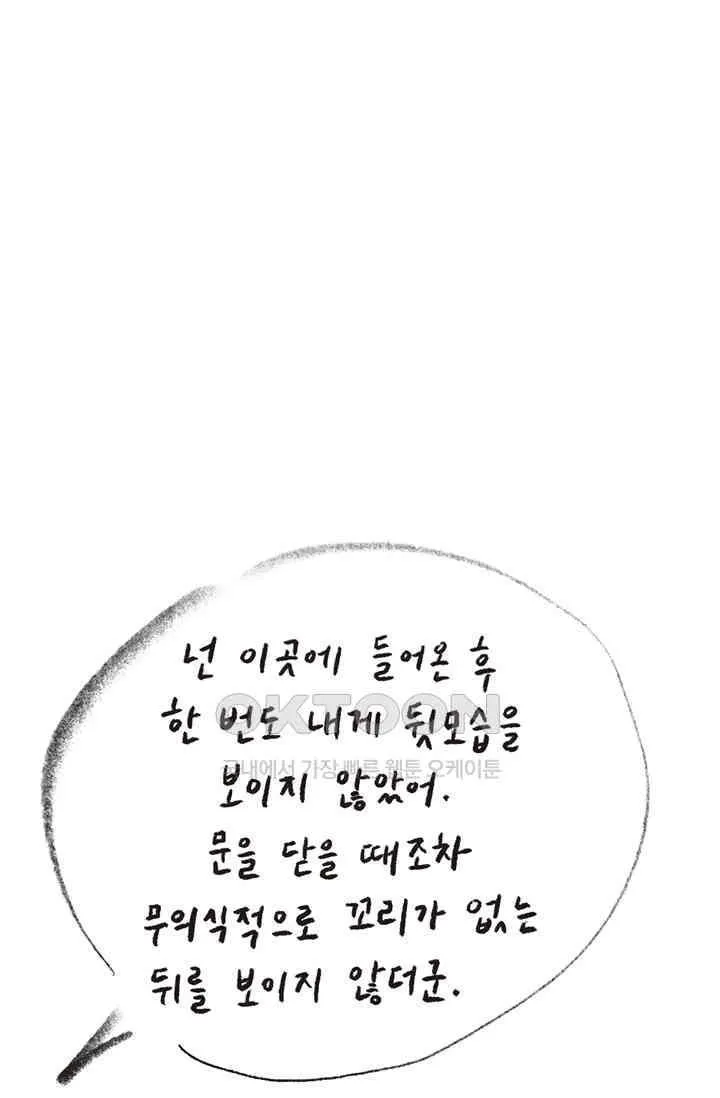 넌 이곳에 들어온 후
OKTOON
한 번도 내게 뒷모습을
국내에서 가장 빠른 웹툰 오케이툰
보이지 않았어.
문을 닫을 때조차
무의식적으로 꼬리가 없는
뒤를 보이지 않더군.